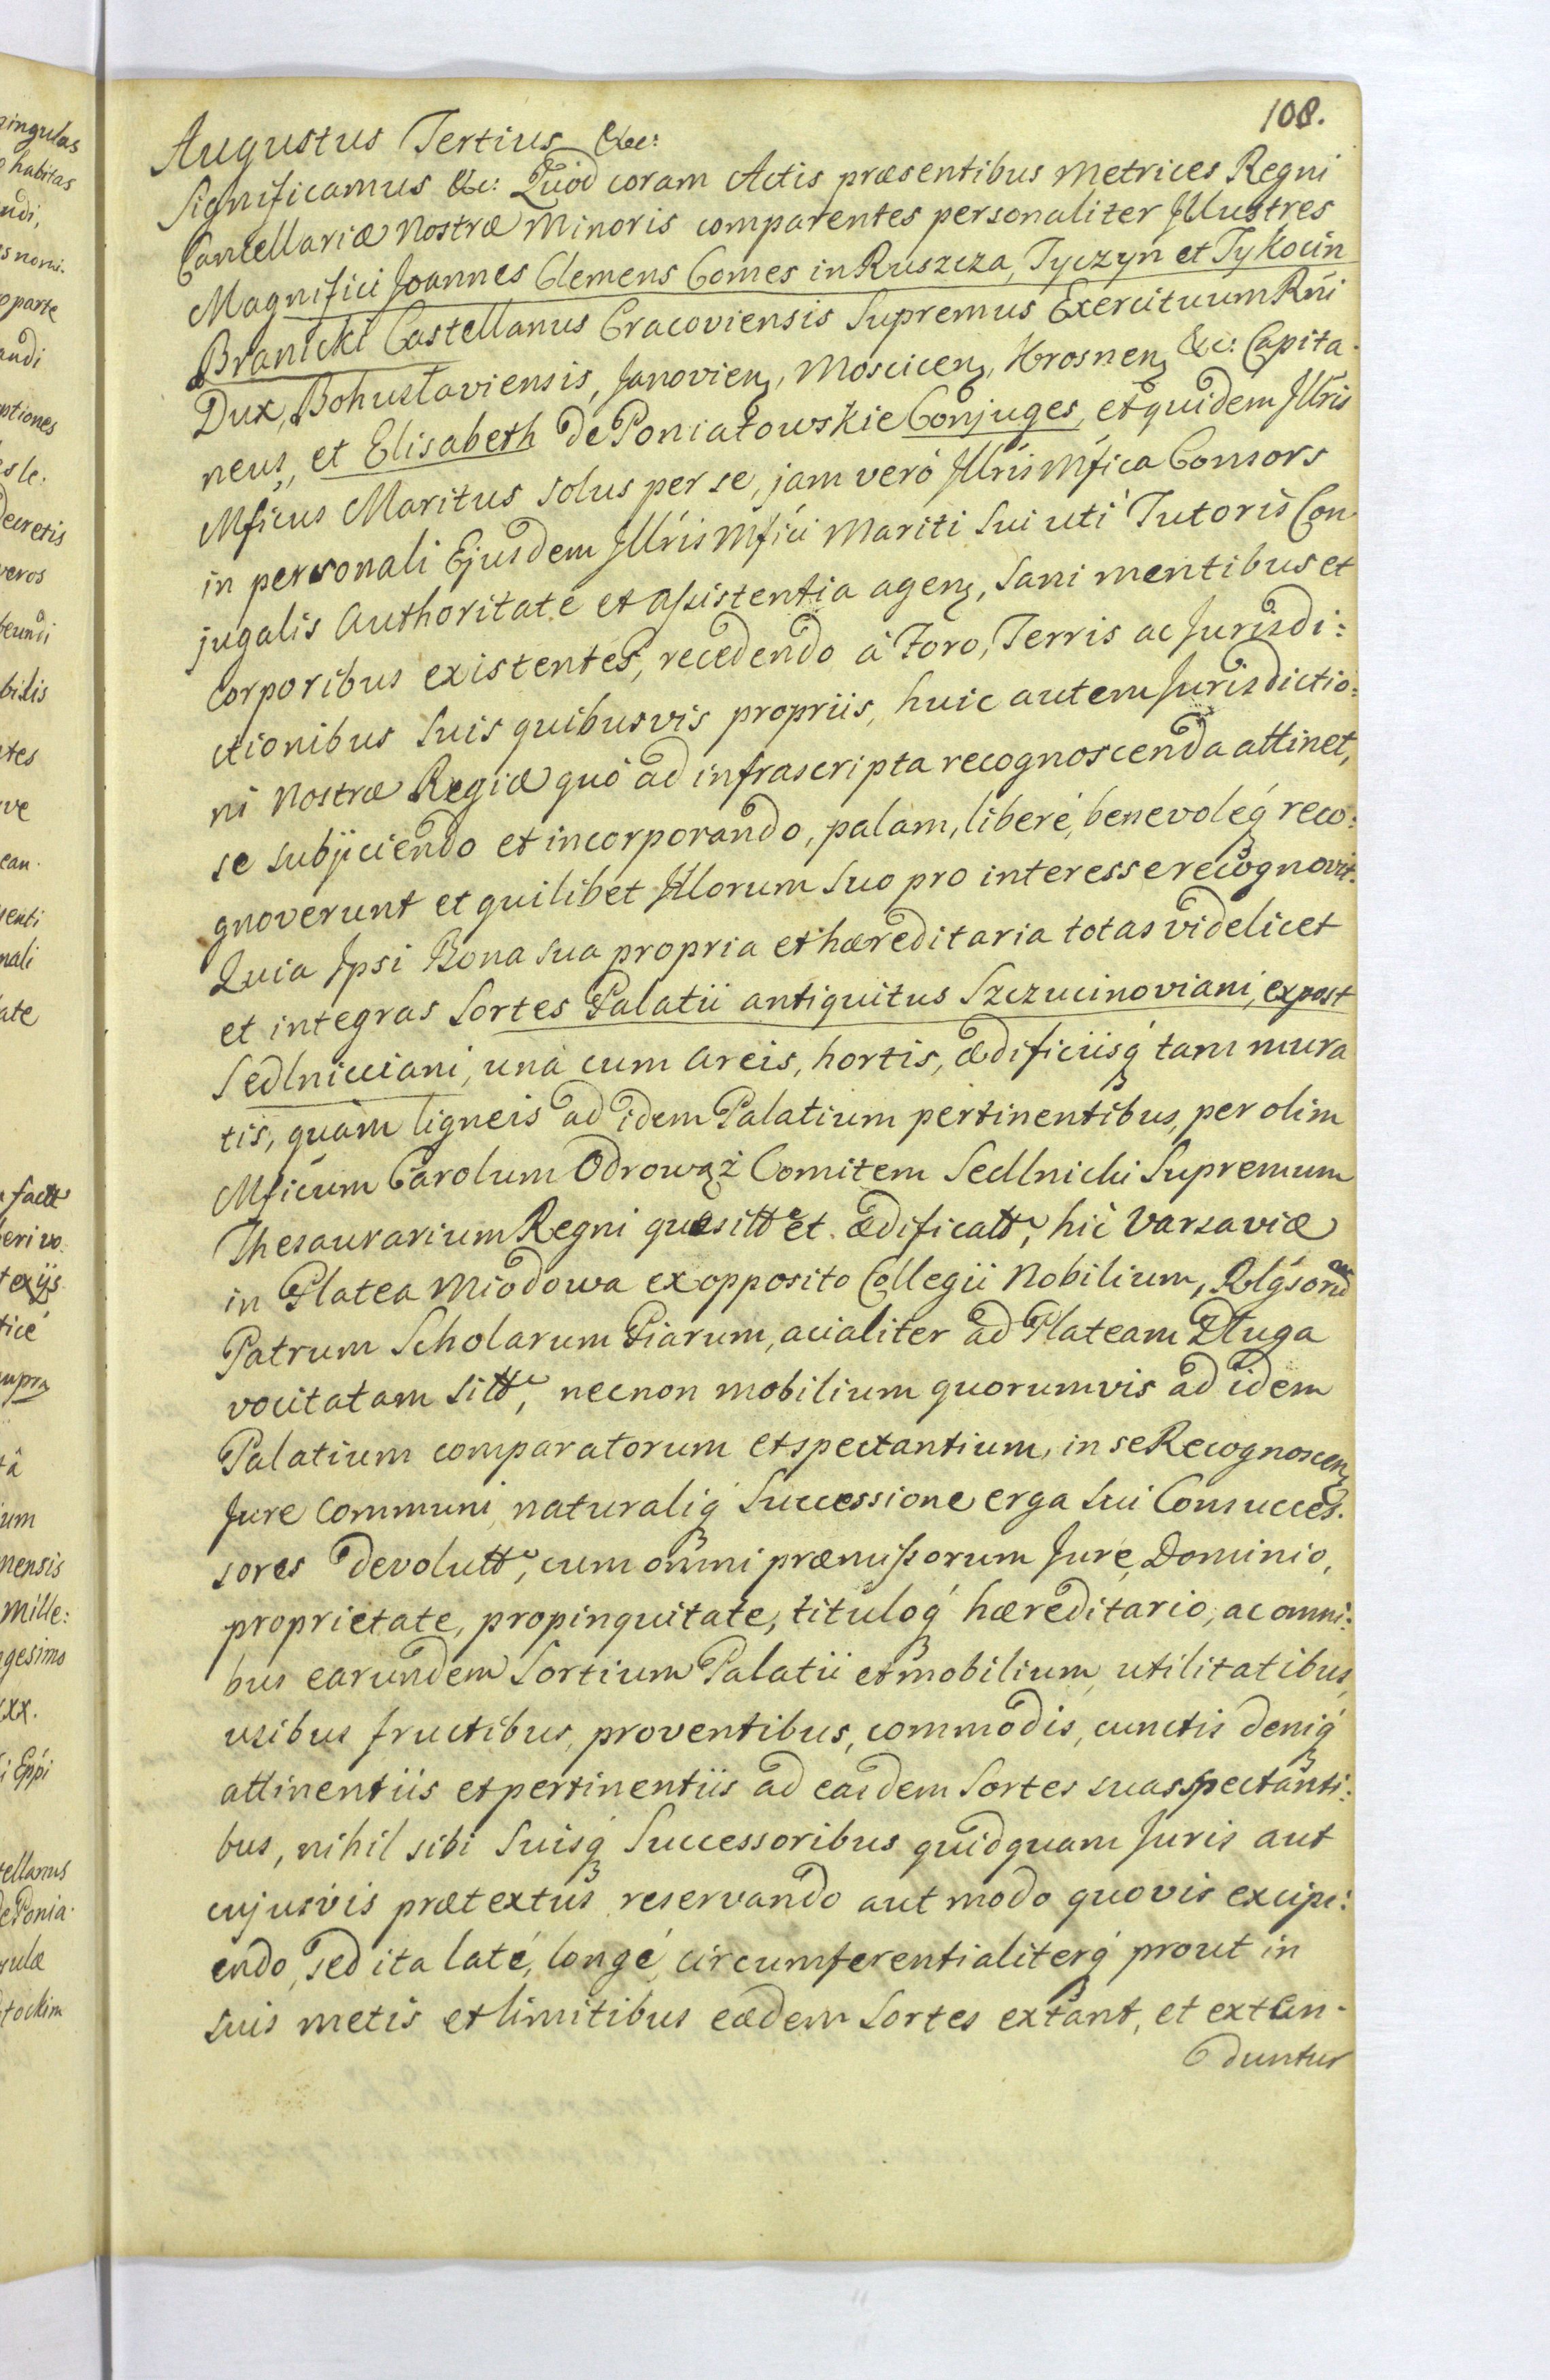 108.
Augustus Tertius &c:
Significamus &c: Quod coram Actis præsentibus Metrices Regni
Cancellariæ Nostræ Minoris comparentes personaliter Illustres
Magnifici Joannes Clemens Comes in Ruszcza, Tyczyn et Tykocin
Branicki Castellanus Cracoviensis Supremus Exercituum Rni
Dux, Bohuslaviensis, Janovien, Moscicen, Krosnen &c: Capita-
neus, et Elisabeth de Poniatowskie Conjuges, et quidem Illris
Mficus Maritus solus per se, jam veró Illris Mfica Consors
in personali Ejusdem Illris Mfici Mariti Sui uti Tutoris Con
jugalis Authoritate et assistentia agen, Sani mentibus et
Corporibus existentes, recedendo á Foro, Terris ac Jurisdi:
ctionibus Suis quibusvis propriis, huic autem Jurisdictio:
ni Nostræ Regiæ quó ad infrascripta recognoscenda attinet,
se subijciendo et incorporando, palam, liberé, benevoleq́ reco:
gnoverunt et quilibet Illorum Suo pro interesse recognovit.
Quia Ipsi Bona sua propria et hæreditaria totas videlicet
et integras Sortes Palatii antiquitus Szczucinoviani, expost
Sedlnicciani, uná cum areis, hortis, ædificiisq́ tam mura
tis, quám ligneis ad idem Palatium pertinentibus, per olim
Mficum Carolum Odrowąż Comitem Sedlnicki Supremum
Thesaurarium Regni quæsitt et ædificatt, hic Varsaviæ
in Platea Miodowa exopposito Collegii Nobilium, Rlgsorum
Patrum Scholarum Piarum, acialiter ad Plateam Długa
vocitatam sitt, necnon mobilium quorumvis ad idem
Palatium comparatorum et spectantium, in se Recognoscen
Jure communi naturaliq́ Successione erga Sui Consucces-
sores devolutt, cum omni præmissorum Jure, Dominio,
proprietate, propinquitate, tituloq́ hæreditario, ac omni:
bus earundem Sortium Palatii et mobilium, utilitatibus,
usibus fructibus, proventibus, commodis, cunctis deniq́
attinentiis et pertinentiis ad easdem Sortes suas spectanti:
bus, nihil sibi Suisq́ Successoribus quidquam Juris aut
cujusvis prætextus reservando aut modo quovis excipi:
endo, sed ita laté, longé, circumferentialiterq́ prout in
suis metis et limitibus eædem Sortes extant, et exten-
duntur